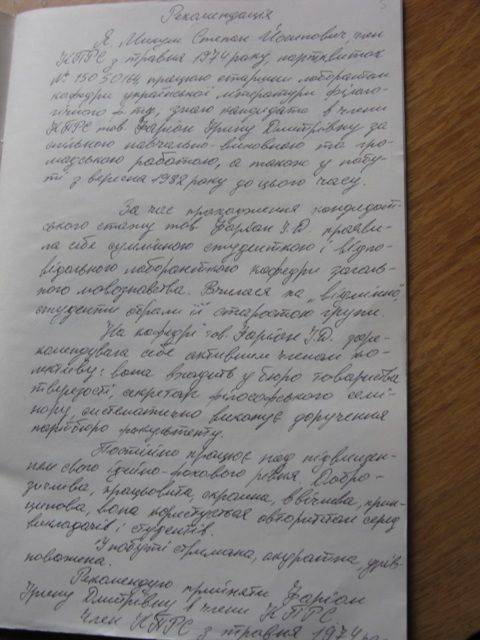 Рекомендація
Я, Микуш Степан Йосипович член
КПРС з травня 1974 року, партквиток
№ 15050164 працюю старшим лаборантом
кафедри української літератури філоло-
гічного ф-ту, знаю кандидата в члени
КПРС тов. Фаріон Ірину Дмитрівну за
спільною навчально-виховною та гро-
мадською роботою, а також у побу-
ті з вересня 1982 року до цього часу.
За час проходження кандидат-
ського стажу тов. Фаріон І.Д. прояви-
ла себе сумлінною студенткою і відпо-
відального лаборантного кафедри загаль-
ного мовознавства. Вчилася на "відмінно",
студенти обрали її старостою групи.
На кафедрі тов. Фаріон І.Д. заре-
комендувала себе активним членом ко-
лективу: вона входить у бюро товариства
тверезості, секретар філософського семі-
нару, систематично виконує доручення
партбюро факультету.
Постійно працює над підвищен-
ням свого ідейно-фахового рівня. Добро-
зичлива, працьовита, скромна, ввічлива, прин-
ципова, вона користується авторитетом серед
викладачів і студентів.
У побуті стримана, акуратна, урів-
новажена.
Рекомендую прийняти Фаріон
Ірину Дмитрівну в члени КПРС
Член КПРС з травня 1974 р.